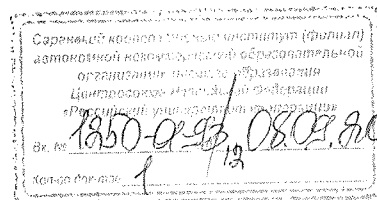 Саранский кооперативный институт (филиал)
автономной некоммерческой образовательной
организации высшего образования
Центросоюза Российской Федерации
«Российский университет кооперации»
Вх. № 1250-01-93/12 08.09.20
Кол-во док-тов 1